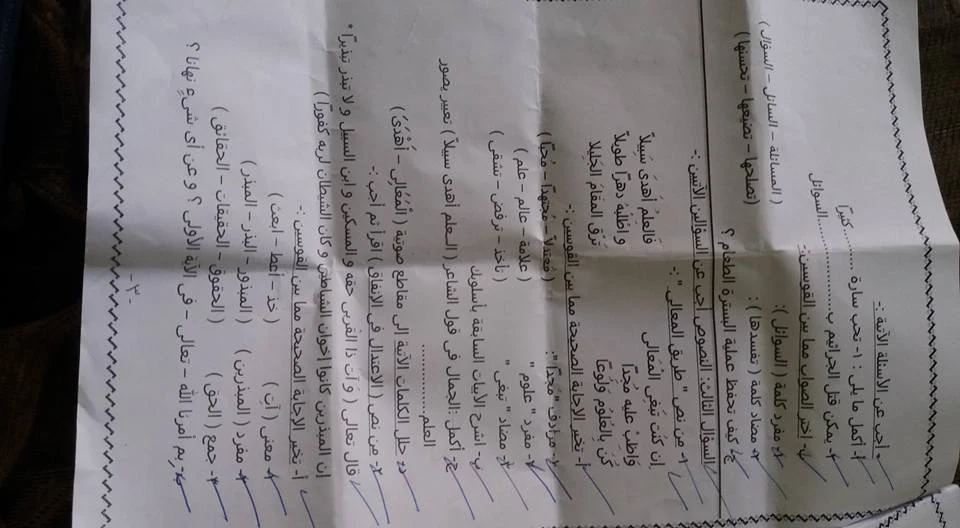 • أجب عن الأسئلة الآتية :-
أ- أكمل ما يلى : ١- تحب سارة ............ كثيرًا
٢- يمكن قتل الجراثيم بـ..................السوائل
ب- اختر الصواب مما بين القوسين:-
١- مفرد كلمة ( السوائل ): ( المسائلة – السائل – السؤال )
٢- مضاد كلمة ( تفسدها ) : (تصلحها – تضيعها – تحسنها )
ج- كيف تحفظ عملية البسترة الطعام ؟
السؤال الثالث: النصوص أجب عن السؤالين الآتيين :-
١- من نص " طريق المعالى " :-
إن كنت تبغى الْمَعَالى فَالعِلمُ أهدَى سَبِيلاً
وَاظب عليه مُجداً و اطْلُبهُ دهراً طويلاً
كُنْ بِالعُلُومِ وَلُوعاً تَرْقَ المقَامَ الجَلِيلَا
أ- تخير الإجابة الصحيحة مما بين القوسين :-
١- مرادف " مُجداً ": ( مُعتدلاً – مُجتهداً – مُحبًا )
٢- مفرد " علوم " ( علامة – عالم – علم )
٣- مضاد " تبغى " ( تأخذ – ترفض – تشقى )
ب- اشرح الأبيات السابقة بأسلوبك
ج- أكمل : الجمال فى قول الشاعر ( العلم أهدى سبيلاً ) تعبير يصور
العلم ............
د- حلل الكلمات الآتية إلى مقاطع صوتية ( الْمَعَالِى – أَهْدَى )
٢- من نص ( الاعتدال فى الإنفاق ) اقرأ ثم أجب :-
قال تعالى ( و آت ذا القربى حقه و المسكين و ابن السبيل و لا تبذر تبذيرًا *
إن المبذرين كانوا إخوان الشياطين و كان الشيطان لربه كفورًا )
أ- تخير الإجابة الصحيحة مما بين القوسين :-
١- معنى ( آت ) ( خذ – أعط – ابعث )
٢- مفرد ( المبذرين ) ( المبذور – البذر – المبذر )
٣- جمع ( الحق ) ( الحقوق – الحقيقات – الحقائق )
ب- بم أمرنا الله – تعالى – فى الآية الأولى ؟ و عن أى شىءٍ نهانا ؟
-٢-